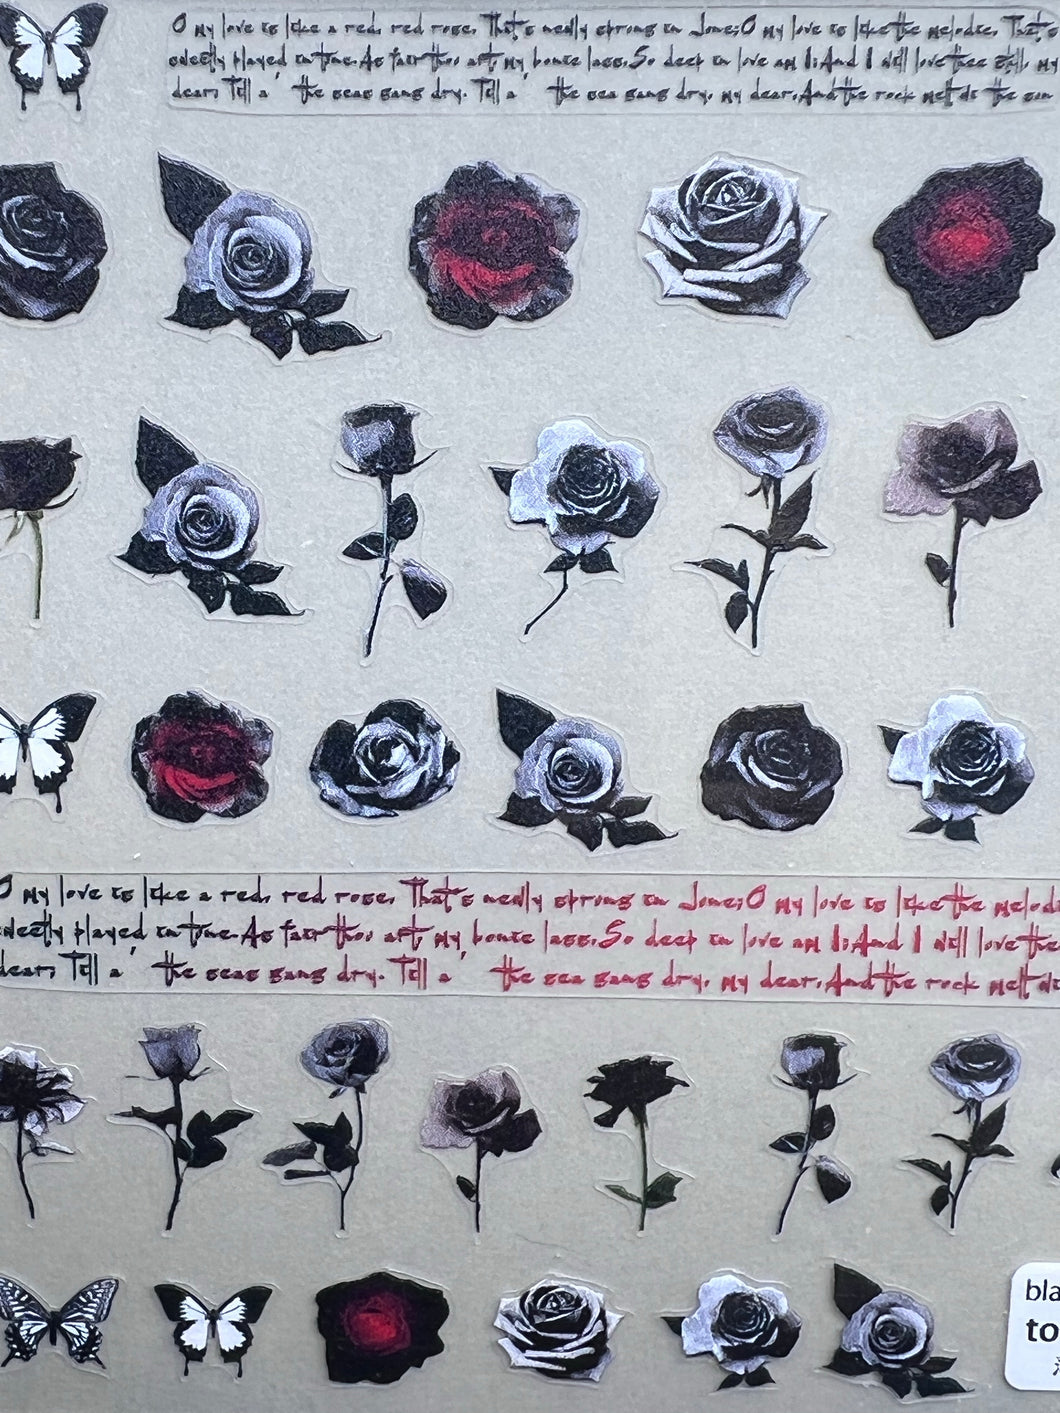 O my love is like a red, red rose, That's newly sprung in June;O my love is like the melodie, That's
sweetly played in tune.As fair thou art, my bonie lass,So deep in love am I;And I will love thee still, my
dear, Till a' the seas gang dry. Till a' the sea gang dry, my dear,And the rock melt wi the sun
O my love is like a red, red rose, That's newly sprung in June;O my love is like the melodi
weetly played in tune.As fair thou art, my bonie lass,So deep in love am I;And I will love thee
dear, Till a' the seas gang dry. Till a' the sea gang dry, my dear,And the rock melt wi
bla
to